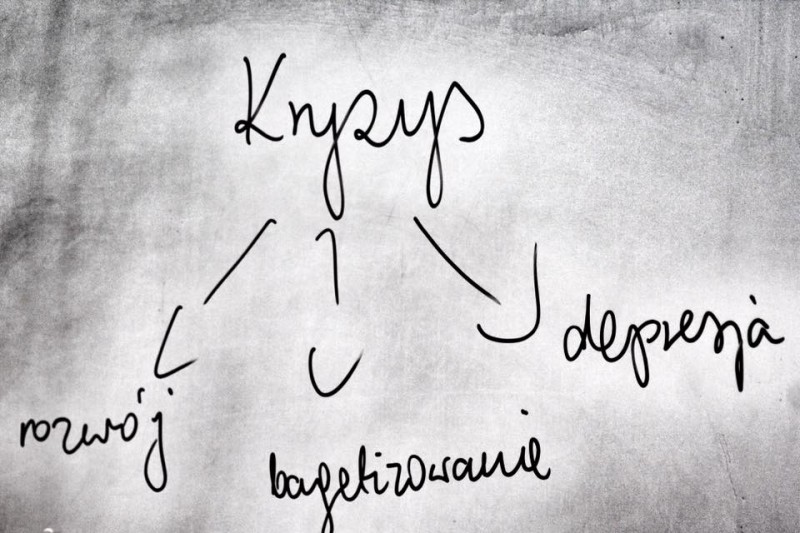 Kryzys
rozwój
bagetizowanie
depresja